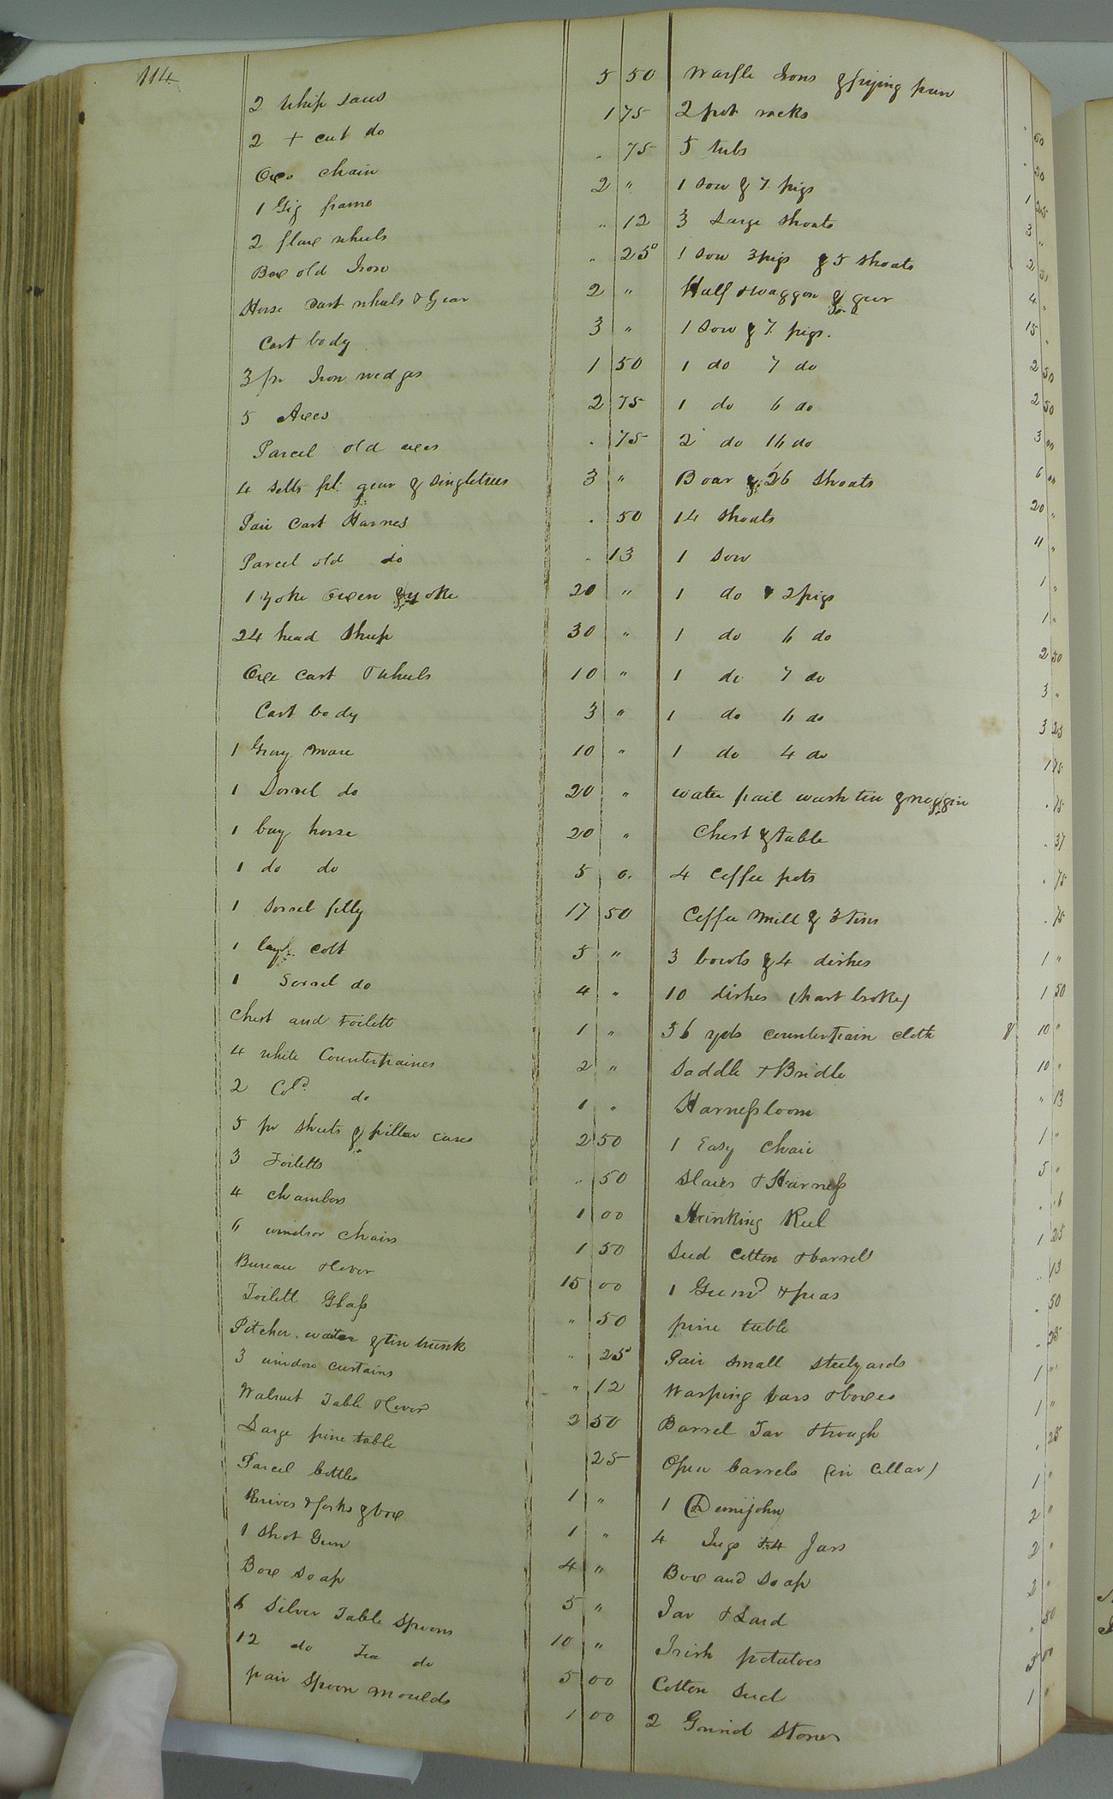 114
2 Whip saws 5 50
2 + cut do 1 75
Oxe chain . 75
1 Gig frame 2 "
2 flax wheels " 12
Box old Iron . 25
Horse Cart wheels & Gear 2 "
Cart body 3 "
3 pr Iron wedges 1 50
5 Axes 2 75
Parcel old axes . 75
4 setts pl: gear & singletrees 3 "
Pair Cart Harness . 50
Parcel old do . 13
1 yoke Oxen & yoke 20 "
24 head Sheep 30 "
Oxe Cart & wheels 10 "
Cart body 3 "
1 Gray mare 10 "
1 Sorrel do 20 "
1 bay horse 20 "
1 do do 5 0.
1 Sorrel filly 17 50
1 bay colt 5 "
1 Sorrel do 4 "
Chest and toilett 1 "
4 white Counterpaines 2 "
2 Cold do 1 "
5 pr Sheets & pillow cases 2 50
3 Toiletts . 50
4 Chambers 1 00
6 windsor chairs 1 50
Bureau & Cover 15 00
Toilett Glass " 50
Pitcher, waiter & tin trunk " 25
3 window curtains " 12
Walnut Table & Cover 2 50
Large pine table 25
Parcel bottles 1 "
Knives & forks & box 1 "
1 Shot Gun 4 "
Box Soap 5 "
6 Silver Table Spoons 10 "
12 do Tea do 5 00
pair Spoon moulds 1 00
Waffle Irons & frying pan . 50
2 pot racks . 50
5 tubs 1 25
1 Sow & 7 pigs 3 "
3 Large Shoats 2 50
1 Sow 3 pigs & 5 Shoats 4 "
Half & waggon & gear 15 "
1 Sow & 7 pigs. 2 50
1 do 7 do 2 50
1 do 6 do 3 "
2 do 16 do 6 "
Boar & 26 Shoats 20 "
14 Shoats 11 "
1 Sow 1 "
1 do & 2 pigs 1 "
1 do 6 do 2 50
1 do 7 do 3 "
1 do 6 do 3 25
1 do 4 do 1 75
water pail wash tin & noggin . 75
Chest & table . 37
4 Coffee pots . 75
Coffee Mill & 3 tins . 75
3 bowls & 4 dishes 1 "
10 dishes (part broke) 1 50
36 yds counterpain cloth 10 "
Saddle & Bridle 10 "
Harness loom " 13
1 Easy Chair 1 "
Slaies & Harness 5 "
Shrinking Reel . 6
Seed Cotton & barrel 1 25
1 & peas . 13
pine table . 50
Pair small steelyards . 25
Warping bars & boxes 1 "
Barrel Tar & trough 1 "
Open barrels (in Cellar) . 25
1 Demijohn 1 "
4 Jugs & 4 Jars 2 "
Box and Soap 2 "
Jar & Lard 2 "
Irish potatoes . 50
Cotton Seed 5 00
2 Grind Stones 1 "